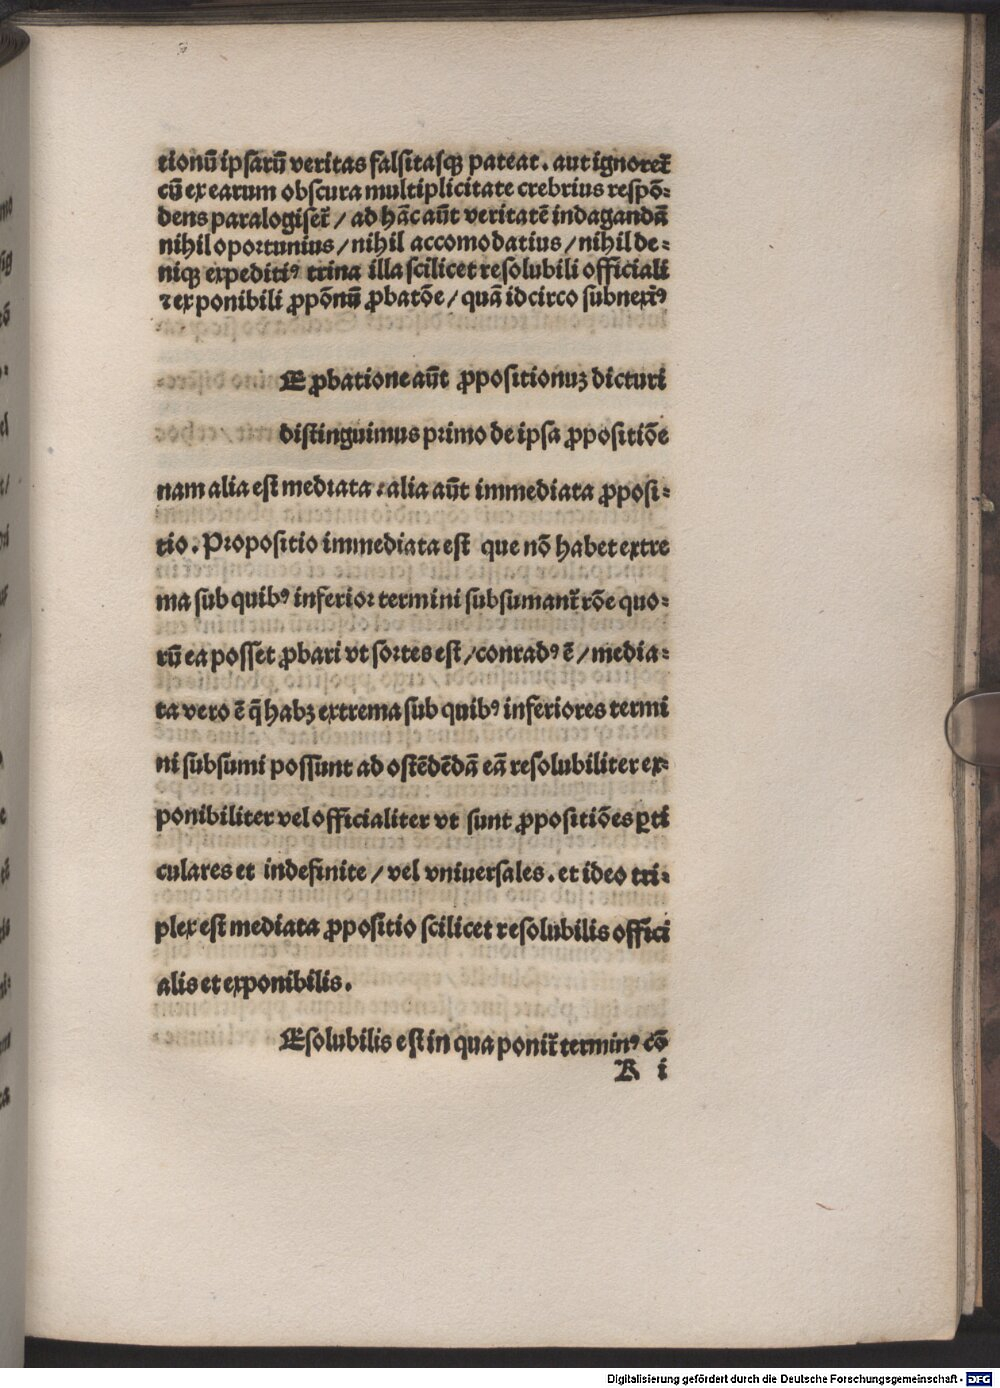 tionū ipsarū veritas falsitasqꝫ pateat. aut ignoret᷑
cū ex earum obscura multiplicitate crebrius respō⸗
dens paralogiset᷑ / ad hāc aūt veritatē indagandā
nihil oportunius / nihil accomodatius / nihil de⸗
niqꝫ expeditiꝰ trina illa scilicet resolubili officiali
⁊ exponibili ꝓpōnū ꝓbatōe / quā idcirco subnexꝰ
E ꝓbatione aūt ꝓpositionuꝫ dicturi
distinguimus primo de ipsa ꝓpositiōe
nam alia est mediata : alia aūt immediata ꝓposi⸗
tio. Propositio immediata est que nō habet extre
ma sub quibꝰ inferior termini subsumant᷑ rōe quo⸗
rū ea posset ꝓbari vt sortes est / conradꝰ ē / media⸗
ta vero ē q̄ habꝫ extrema sub quibꝰ inferiores termi
ni subsumi possunt ad ostēdēdā eā resolubiliter ex⸗
ponibiliter vel officialiter vt sunt ꝓpositiōes ꝑti
culares et indefinite / vel vniuersales. et ideo tri⸗
plex est mediata ꝓpositio scilicet resolubilis offici
alis et exponibilis.
Esolubilis est in qua ponit᷑ terminꝰ cō
A i
Digitalisierung gefördert durch die Deutsche Forschungsgemeinschaft - DFG